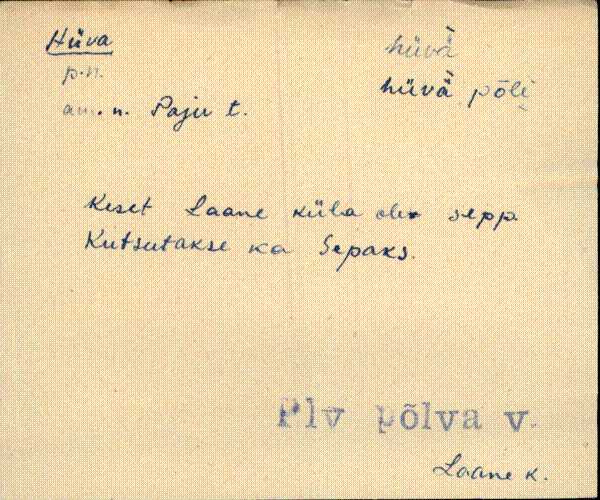 Hüva
hüvä
p.n.
hüvä põli
am. n. Paju t.
Keset Laane küla oli sepp.
Kutsutakse ka Sepaks.
Plv põlva v.
Laane k.